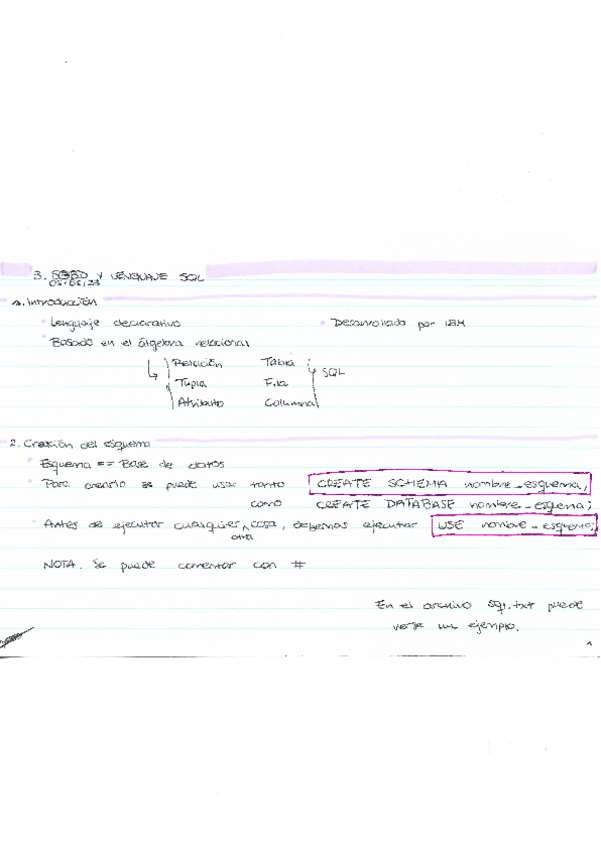 3. SGBD Y LENGUAJE SQL
05/05/23
1. Introducción
• Lenguaje declarativo • Desarrollado por IBM
• Basado en el álgebra relacional
↳ Relación Tabla
Tupla Fila SQL
Atributo Columna
2. Creación del esquema
• Esquema == Base de datos
• Para crearlo se puede usar tanto CREATE SCHEMA nombre_esquema;
como CREATE DATABASE nombre_esquema;
• Antes de ejecutar cualquier otra cosa, debemos ejecutar USE nombre_esquema;
NOTA. Se puede comentar con #
En el archivo sql.txt puede
verse un ejemplo.
1